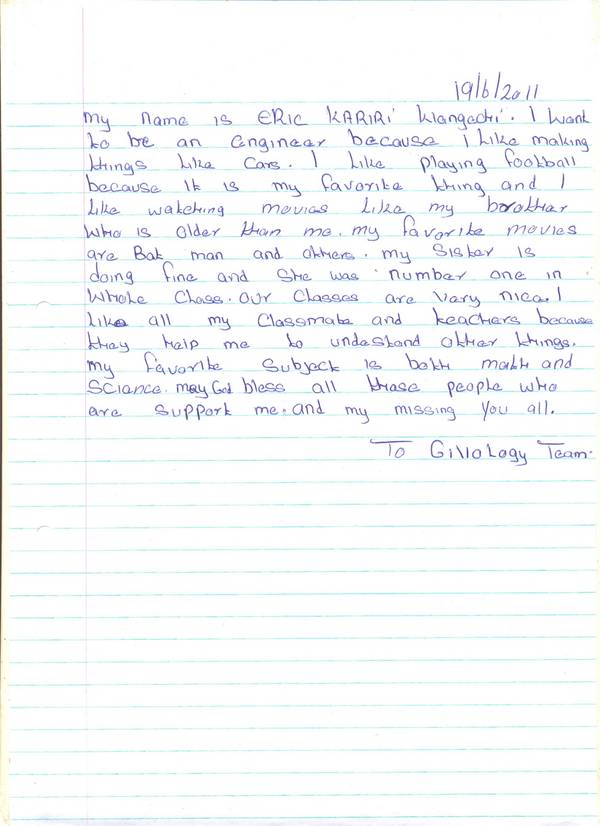 19/6/2011
my name is ERIC KARIRI Wangechi. I want
to be an engineer because i like making
things like cars. I like playing football
because it is my favorite thing and I
like watching movies like my brother
who is older than me. my favorite movies
are Bat man and others. my sister is
doing fine and she was number one in
whole class. our classes are very nice. I
like all my classmate and teachers because
they help me to undestand other things.
my favorite subject is both math and
sciance. may God bless all those people who
are support me. and my missing you all.
To Givology Team.